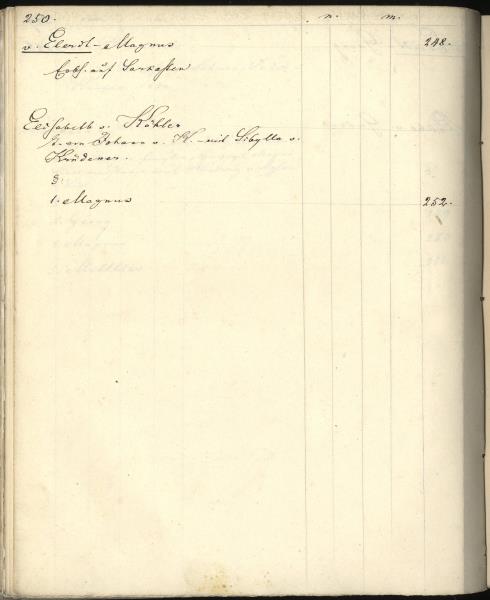 250. n. m.
v. Elerdt - Magnus 248.
Erbh. auf
Elisabeth v. Köhler
T. v. Johann v. K. und Sibylla v.
Krüdener.
S.
1. Magnus 252.